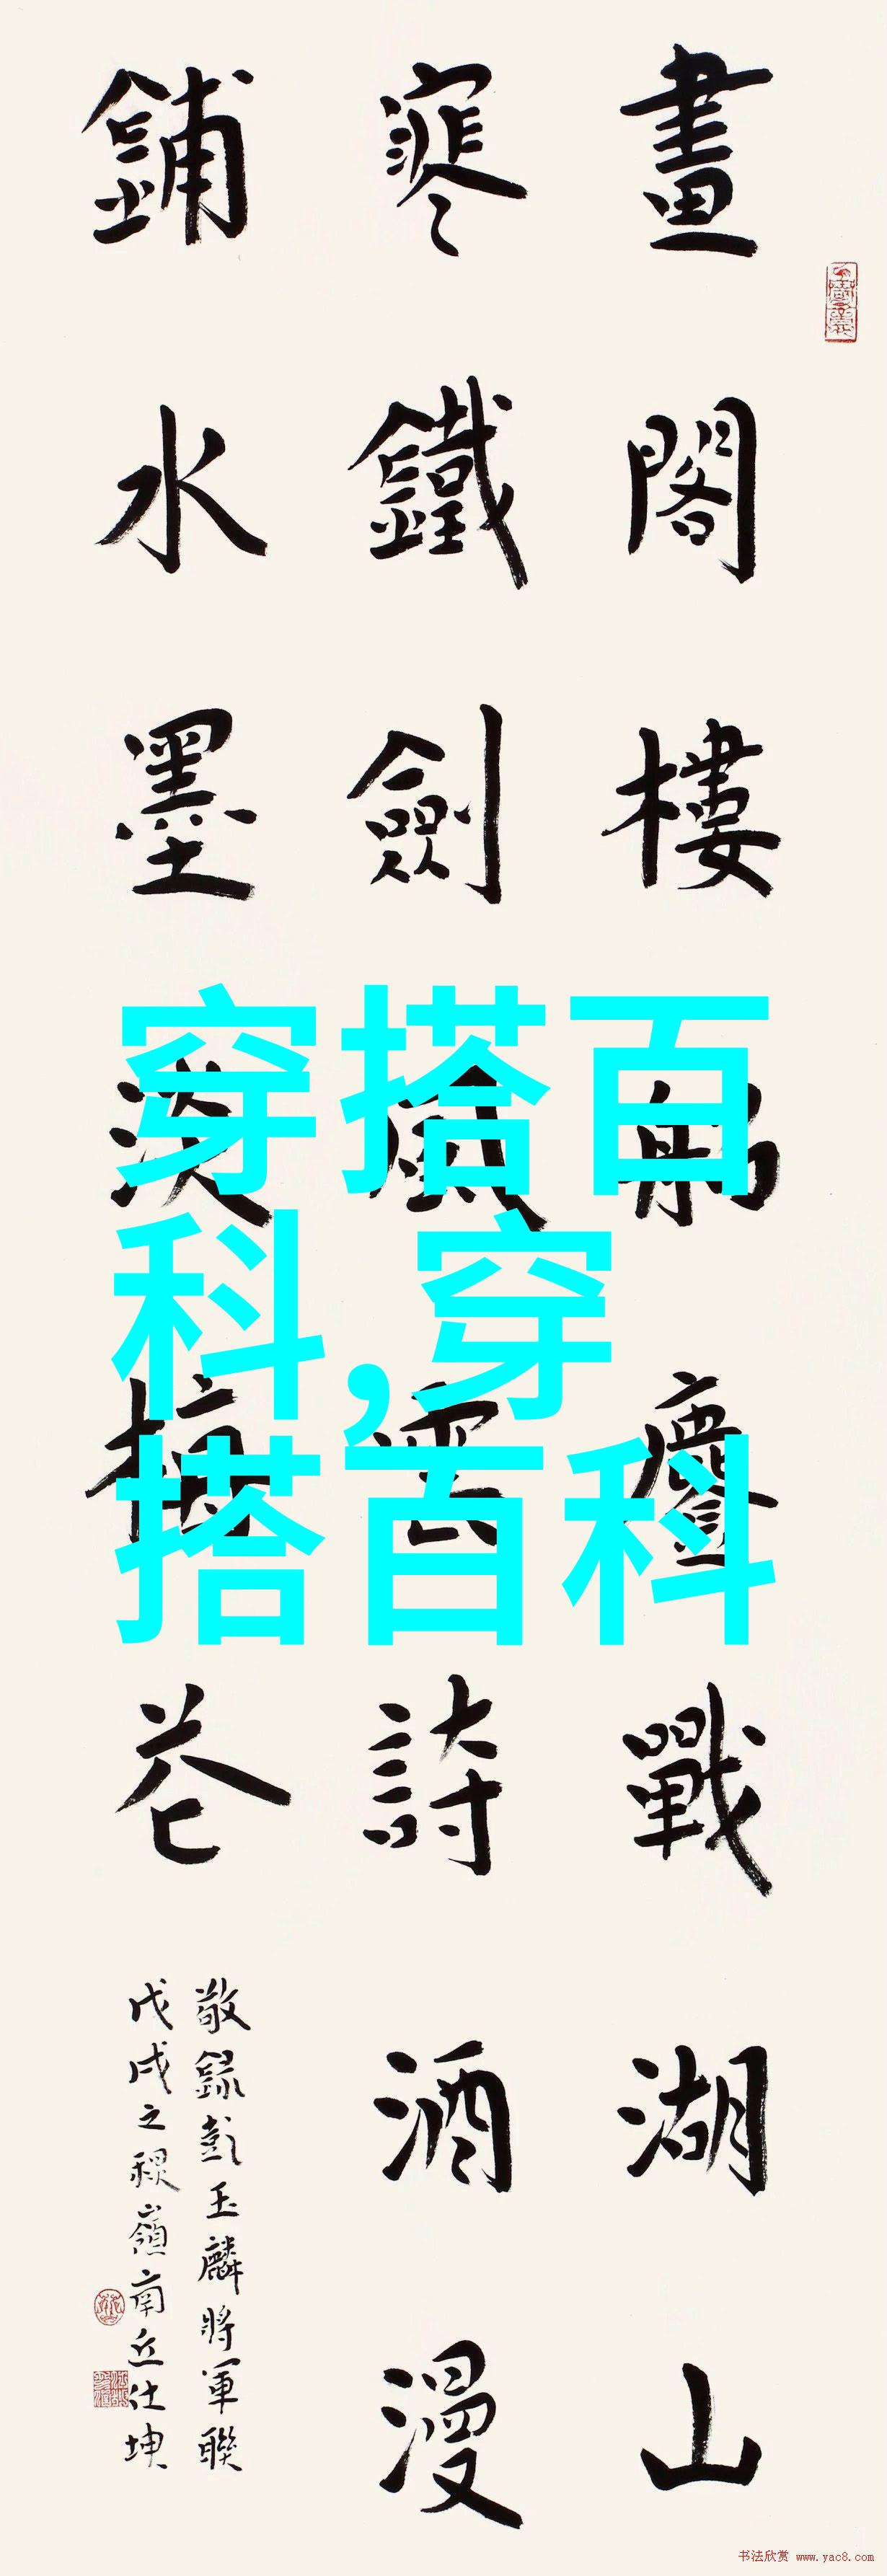 畫閣樓船鏖戰湖山
寒鐵劍風雲詩酒漫
鋪水墨淡梅花
敬錄彭玉麟將軍聯
戊戌之嶺南丘仕坤
穿搭百
科,穿
搭百科
书法欣赏 www.yac8.com